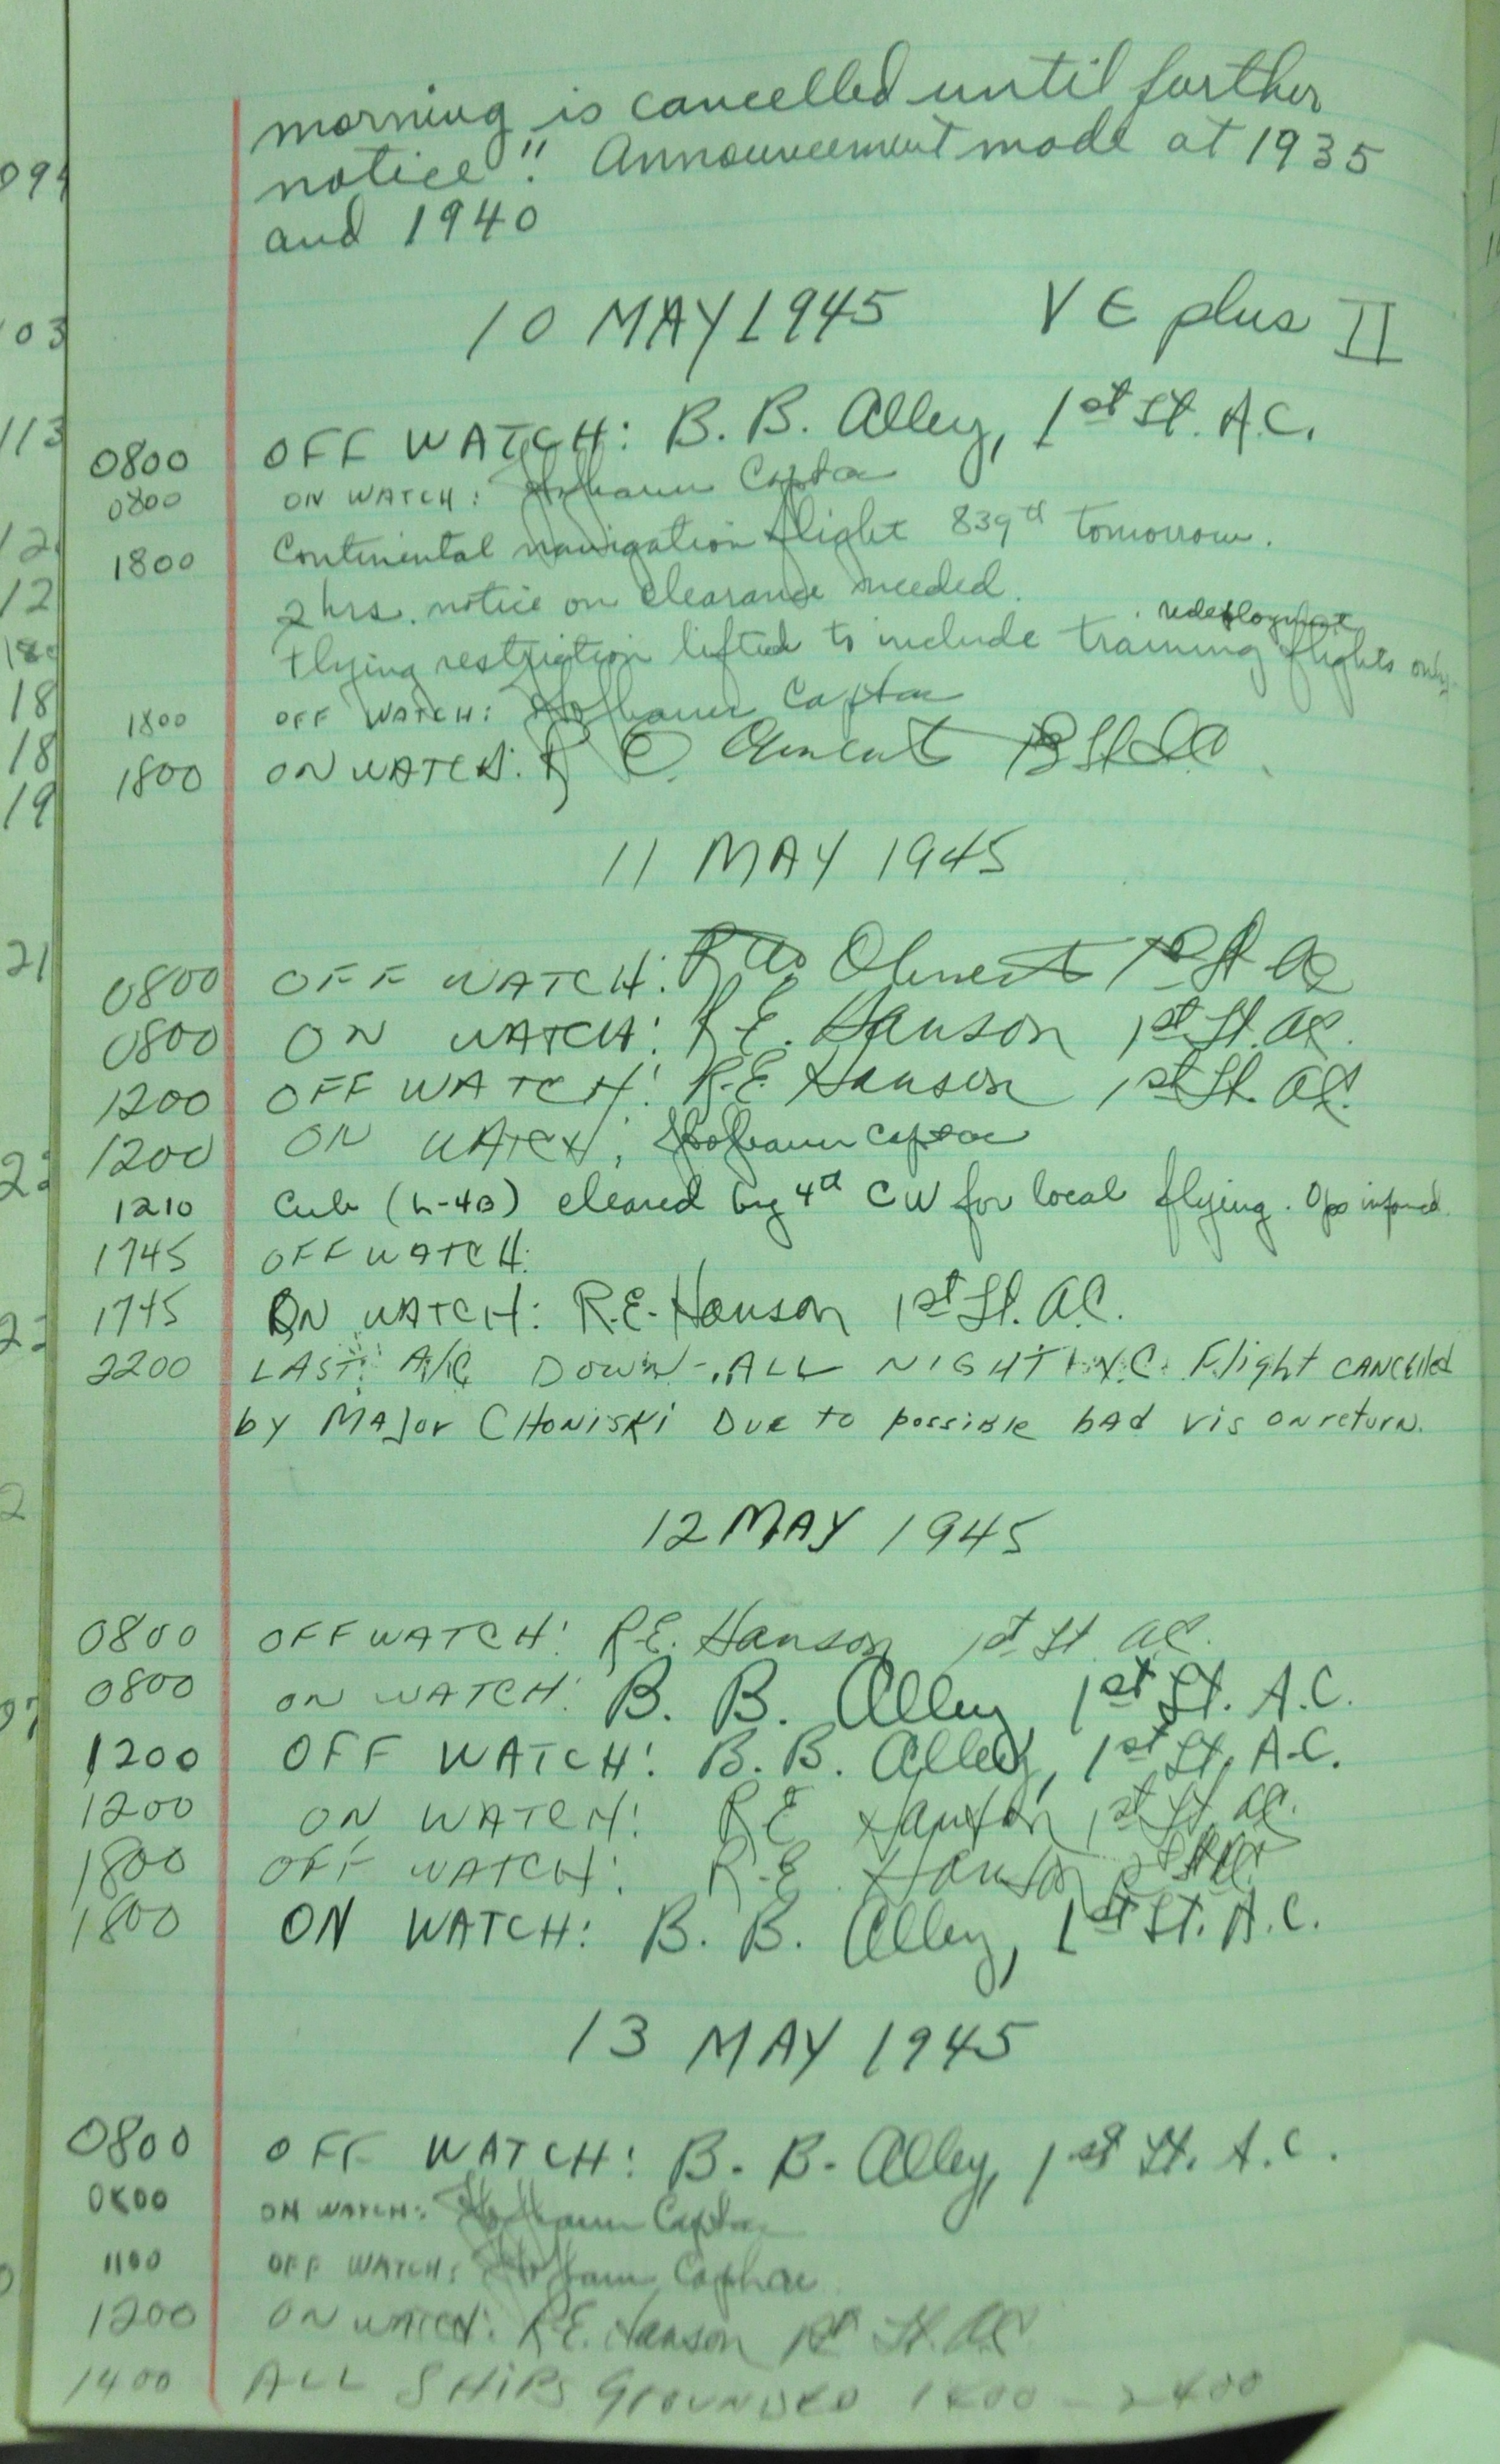 morning is cancelled until further
notice". Announcement made at 1935
and 1940
10 MAY 1945 VE plus II
0800 OFF WATCH: B. B. Alley, 1st Lt. A.C.
0800 ON WATCH: Capt ac
1800 Continental navigation flight 839th tomorrow.
2 hrs. notice on clearance needed.
redeployment
Flying restriction lifted to include training flights only
1800 OFF WATCH: Capt ac
1800 ON WATCH: R
11 MAY 1945
0800 OFF WATCH: 1st Lt ac
0800 ON WATCH: R.E. Hanson 1st Lt. AC.
1200 OFF WATCH: R.E. Hanson 1st Lt. AC.
1200 ON WATCH: Capt ac
1210 Cub (L-4B) cleared by 4th CW for local flying. Ops informed.
1745 OFF WATCH:
1745 ON WATCH: R.E. Hanson 1st Lt. A.C.
2200 LAST A/C DOWN - ALL NIGHT X.C. Flight CANCElled
by MAJor CHONISKi Due to possible bAd vis on return.
12 MAY 1945
0800 OFF WATCH: R.E. Hanson 1st Lt AC.
0800 ON WATCH: B. B. Alley 1st Lt. A.C.
1200 OFF WATCH: B. B. Alley, 1st Lt. A.C.
1200 ON WATCH: R E Hanson 1st Lt. AC.
1800 OFF WATCH: R.E. Hanson
1800 ON WATCH: B. B. Alley, 1st Lt. A.C.
13 MAY 1945
0800 OFF WATCH: B. B. Alley, 1st Lt. A.C.
0800 ON WATCH: Capt ac
1100 OFF WATCH: Capt ac
1200 ON WATCH: R.E. Hanson 1st Lt. AC
1400 ALL SHIPS GROUNDED - 2400